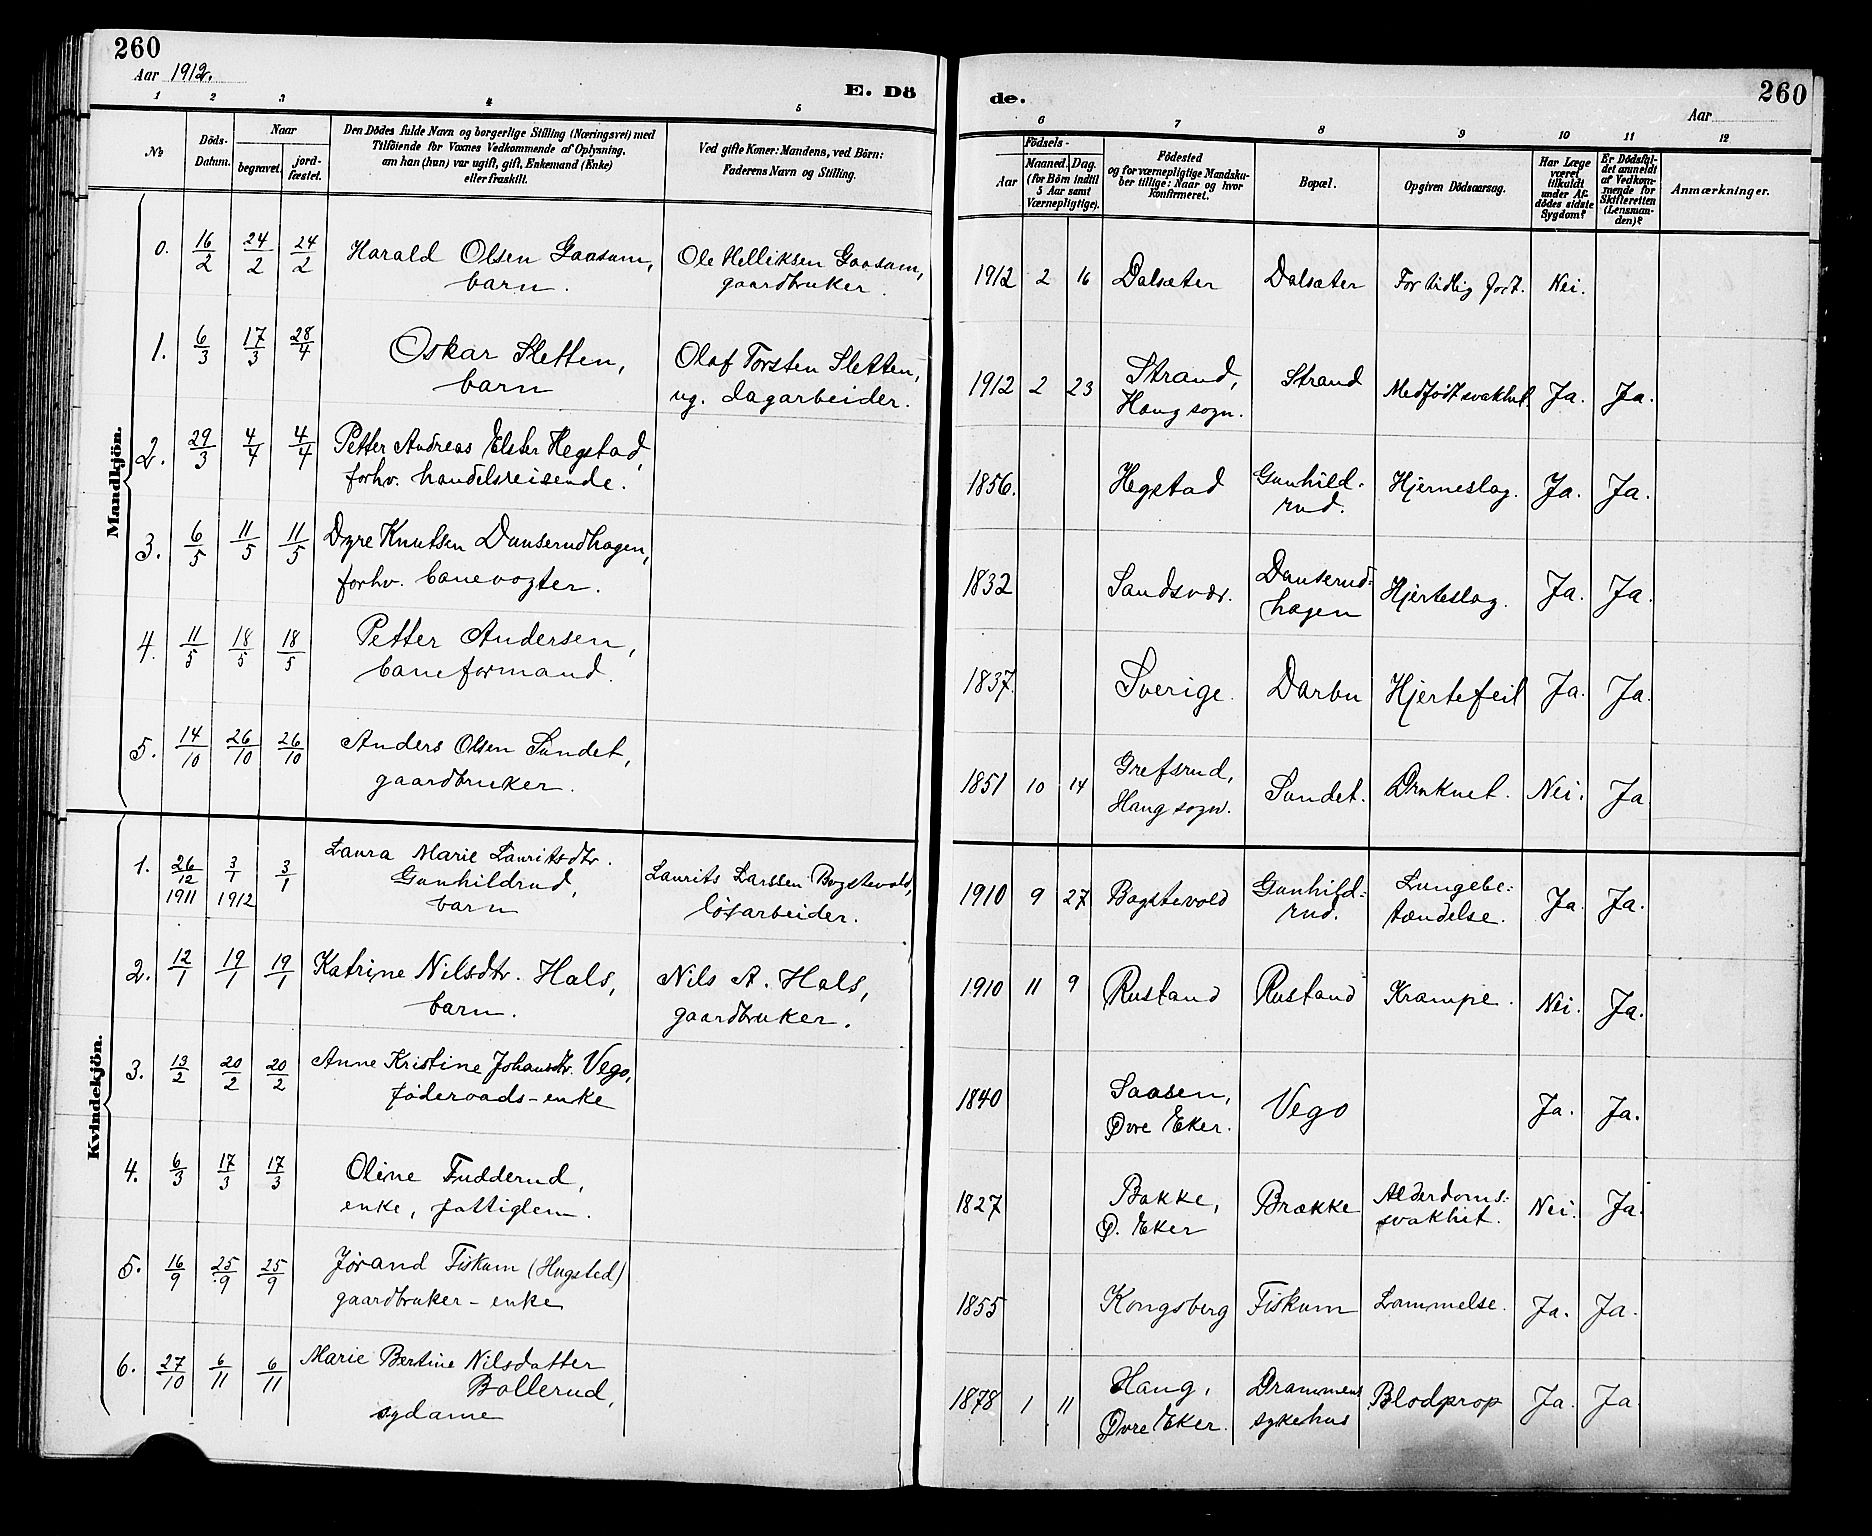 260
Aar 1912.
E. Dö
1 2 3 4 5
No
Döds-
Datum.
Naar
begravet.
jord-
fæstet.
Den Dödes fulde Navn og borgerlige Stilling (Næringsvei) med
Tilföiende for Voxnes Vedkommende af Oplysning,
om han (hun) var ugift, gift, Enkemand (Enke)
eller fraskilt.
Ved gifte Koner: Mandens, ved Börn:
Faderens Navn og Stilling.
de.
Aar
260
6 7 8 9 10 11 12
Födsels-
Aar
Maaned. Dag.
(for Börn indtil
5 Aar samt
Værnepligtige).
Födested
og for værnepligtige Mandska-
ber tillige: Naar og hvor
konfirmeret.
Bopæl.
Opgiven Dödsaarsag.
Har Læge
været
tilkaldt
under Af-
dödes sidste
Sygdom?
Er Dödsfal-
det anmeldt
af Vedkom-
mende for
Skifteretten
(Lensman-
den)?
Anmærkninger.
Mandkjön.
0. 16/2 24/2 24/2 Harald Olsen Gaasam, Ole Helliksen Gaasam, 1912 2 16 Dalsæter Dalsæter For tidlig født. Nei.
barn. gaardbruker.
1. 6/3 17/3 28/4 Oskar Sletten, Olaf Torsten Sletten, 1912 2 23 Strand, Strand Medfødt svakhet. Ja. Ja.
barn ug. dagarbeider. Haug sogn.
2. 29/3 4/4 4/4 Petter Andreas Elster Hegstad, 1856. Hegstad Gunhild- Hjerneslag. Ja. Ja.
forhv. handelsreisende. rud.
3. 6/5 11/5 11/5 Dyre Knutsen Dunserudhagen, 1832 Sandsvær. Dunserud- Hjerteslag. Ja. Ja.
forhv. banevogter. hagen
4. 11/5 18/5 18/5 Petter Andersen, 1837. Sverige. Darbu Hjertefeil Ja. Ja.
baneformand.
5. 14/10 26/10 26/10 Anders Olsen Sundet, 1851 10 14 Grefsrud, Sundet. Druknet. Nei. Ja
gaardbruker. Haug sogn.
Kvindekjön.
1. 26/12 1911 3/1 1912 3/1 Laura Marie Lauritsdtr. Laurits Larssen Bogstevold, 1910 9 27 Bogstevold Gunhild- Lungebe- Ja Ja.
Gunhildrud, løsarbeider. rud. tændelse.
barn
2. 12/1 19/1 19/1 Katrine Nilsdtr. Hals, Nils A. Hals, 1910 11 9 Rustand Rustand Krampe. Nei. Ja.
barn. gaardbruker.
3. 13/2 20/2 20/2 Anne Kristine Johansdtr. Vego, 1840 Saasen, Vego Ja. Ja.
føderaads-enke Øvre Eker.
4. 6/3 17/3 17/3 Oline Fudderud, 1827 Bakke, Brække Alderdoms- Nei. Ja.
enke, fattiglem. Ø. Eker svakhet.
5. 16/9 25/9 25/9 Jørand Fiskum (Hugsted) 1855 Kongsberg Fiskum Lammelse. Ja. Ja.
gaardbruker-enke
6. 27/10 6/11 6/11 Marie Bertine Nilsdatter 1878 1 11 Haug, Drammens Blodprop Ja. Ja.
Bollerud, Øvre Eker. sykehus
sydame